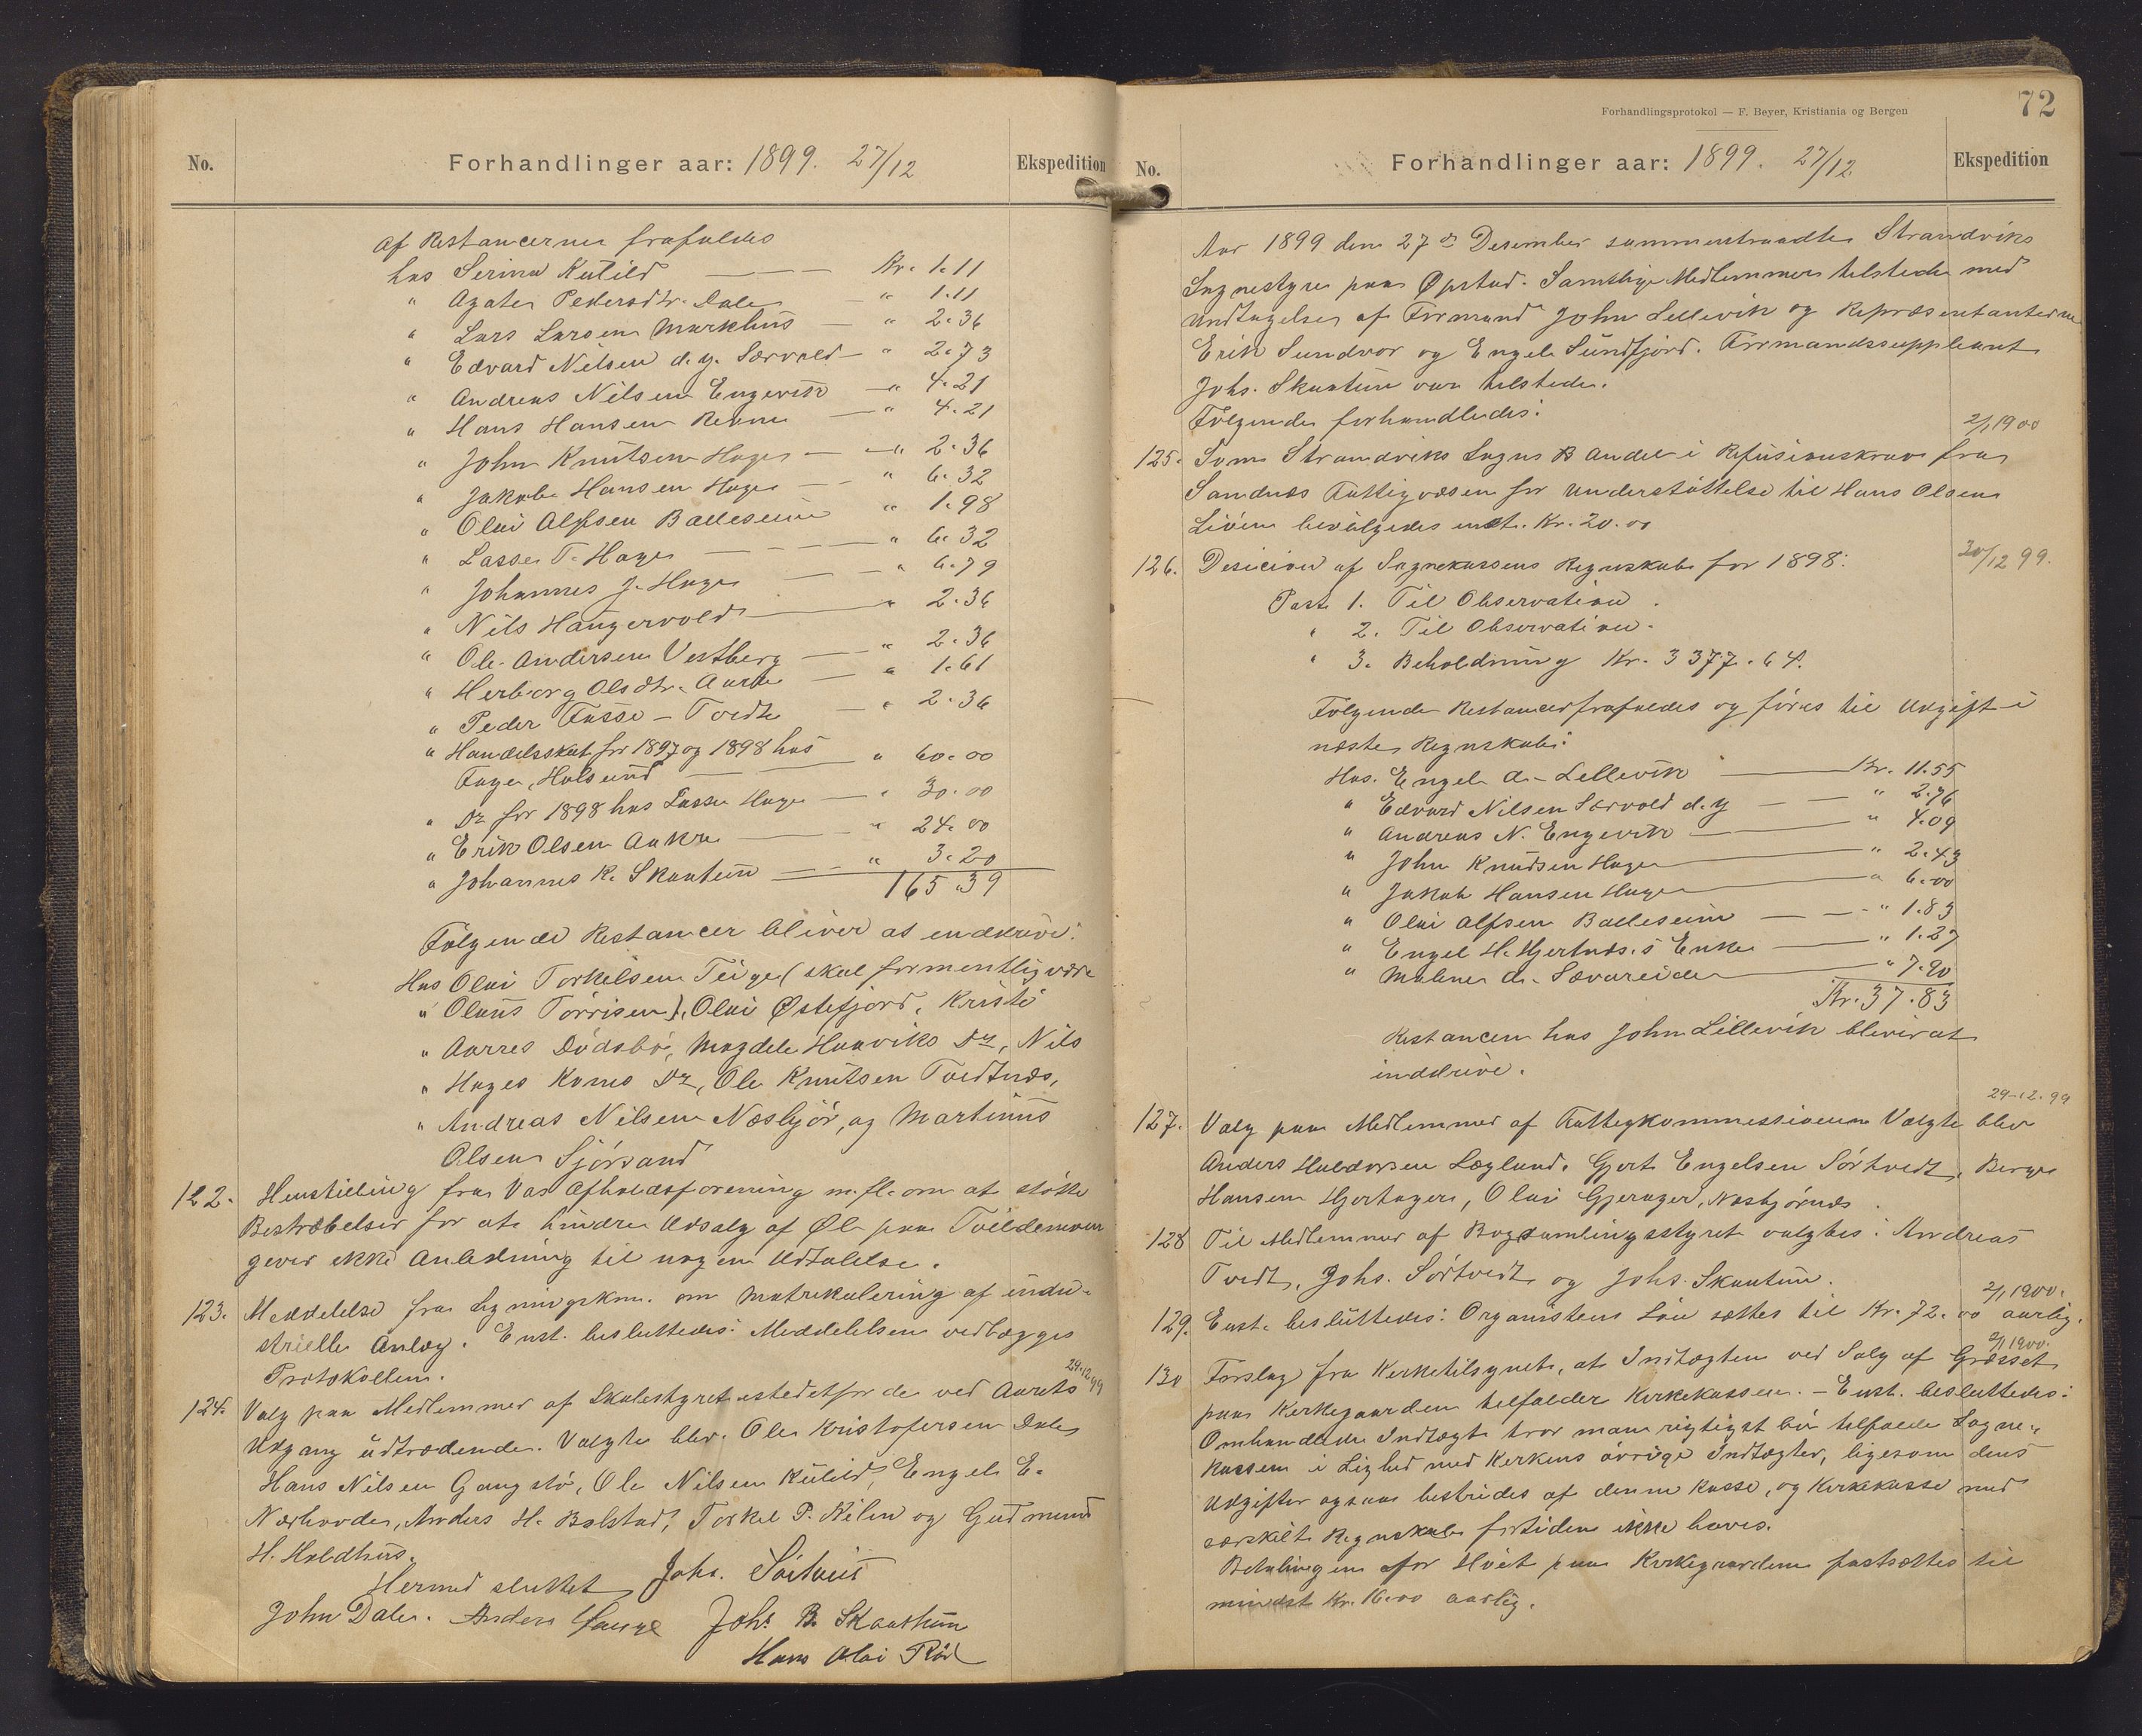 No. Forhandlinger aar: 1899. 27/12 Ekspedition
af Restancerne frafaldes
hos Serina Kutild — Kr. 1.11
" Agate Pedersdtr. Dale — " 1.11
" Lars Larsen Markhus — " 2.36
" Edvard Nilsen d.y. Særvold — " 2.73
" Andreas Nilsen Engevik — " 4.21
" Hans Hansen Revne — " 4.21
" John Knutsen Hage — " 2.36
" Jakob Hansen Hage — " 6.32
" Olai Alfsen Balleseim " 1.98
" Lasse T. Hage — " 6.32
" Johannes J. Hage — " 6.79
" Nils Haugervold — " 2.36
" Ole Andersen Vestberg — " 2.36
" Herborg Olsdtr. Aarhe — " 1.61
" Peder Fusse - Tvedte — " 2.36
" Handelsskat for 1897 og 1898 hos
Fage, Holsund — " 60.00
" Do for 1898 hos Lasse Hage — " 30.00
" Erik Olsen Aakre — " 24.00
" Johannes K. Skaatun — " 3.20
165.39
Følgende Restancer bliver at inddrive:
Hos Olai Torkelsen Teige (skal formentlig være
" Olaus Tørrisen), Olai Østefjord, Kristi
" Aarres Dødsbo, Magdele Haaviks Do, Nils
" Hages Kones Do, Ole Knutsen Tvedtnæs,
" Andreas Nilsen Næsbjør, og Martinus
Olsen Sjørsand
122. Henstilling fra Vas Afholdsforening m. fl. om at støtte
Bestræbelser for at hindre Udsalg af Øl paa Tvildemoen
giver ikke Anledning til nogen Udtalelse.
123. Meddelelse fra Ligningskm. om Matrikulering af indu-
strielle Anlæg. Enst. besluttedes: Meddelelsen vedlægges
Protokollen.
29-12 99
124. Valg paa Medlemmer af Skolestyret istedetfor de ved Aarets
Udgang udtrædende. Valgte blev. Ole Kristofersen Dale
Hans Nilsen Gangstø, Ole Nilsen Kutild, Engel E.
Nærhovde, Anders H. Bolstad, Torkel P. Kilen og Gudmund
H. Holdhus.
Hermed sluttet Johs. Sørtveit
John Dale. Anders Hauge Johs B. Skaathun
Hans Olai Rød
72
Forhandlingsprotokol — F. Beyer, Kristiania og Bergen
No. Forhandlinger aar: 1899. 27/12 Ekspedition
Aar 1899 den 27de Desember sammentraadte Strandviks
Sognestyre paa Øpstad. Samtlige Medlemmer tilstede med
Undtagelse af Formand John Lellevik og Repræsentanterne
Erik Sundvor og Engel Sundfjord. Formandssuppleant
Johs. Skaatun var tilstede.
Følgende forhandledes:
2/1 1900
125. Som Strandviks Sogns ½ Andel i Refusionskrav fra
Sandnæs Fattigvæsen for Understøttelse til Hans Olsen
Livén bevilgedes enst. Kr. 20.00
126. Desicion af Sognekassens Regnskab for 1898: 30/12 99.
Post 1. Til Observation.
" 2. Til Observation.
" 3. Beholdning Kr. 3377.64.
Følgende Restancer frafaldes og føres til Udgift i
næste Regnskab:
Hos. Engel A. Lellevik — Kr. 11.55
" Edvard Nilsen Særvold d.y — " 2.76
" Andreas N. Engevik — " 4.09
" John Knudsen Hage — " 2.43
" Jakob Hansen Hage — " 6.00
" Olai Alfsen Balleseim — " 1.83
" Engel H. Hjertnæs.s Enke — " 1.27
" Malene A. Sævareide — " 7.90
Kr. 37.83
Restancen hos John Lellevik bliver at
inddrive.
29-12.99
127. Valg paa Medlemmer af Fattigkommissionen Valgte blev
Anders Haldorsen Løglund, Gjert Engelsen Sørtvedt, Berge
Hansen Hjertager, Olai Gjerager, Næsbjørnæs.
128 Til Medlemmer af Bogsamlingsstyret valgtes: Andreas
Tvedt, Johs. Sørtvedt og Johs. Skaatun.
2/1 1900.
129. Enst. besluttedes: Organistens Løn sættes til Kr. 72.00 aarlig.
2/1 1900.
130 Forslag fra Kirketilsynet, at Indtægten ved Salg af Græsset
paa Kirkegaarden tilfalder Kirkekassen. - Enst. besluttedes:
Omhandlede Indtægt tror man rigtigst bør tilfalde Sogne-
kassen i Lighed med Kirkens øvrige Indtægter, ligesom dens
Udgifter ogsaa bestrides af denne Kasse, og Kirkekasse med
særskilt Regnskab fortiden ikke haves.
Betalingen for Høet paa Kirkegaarden fastsættes til
mindst Kr. 16.00 aarlig.